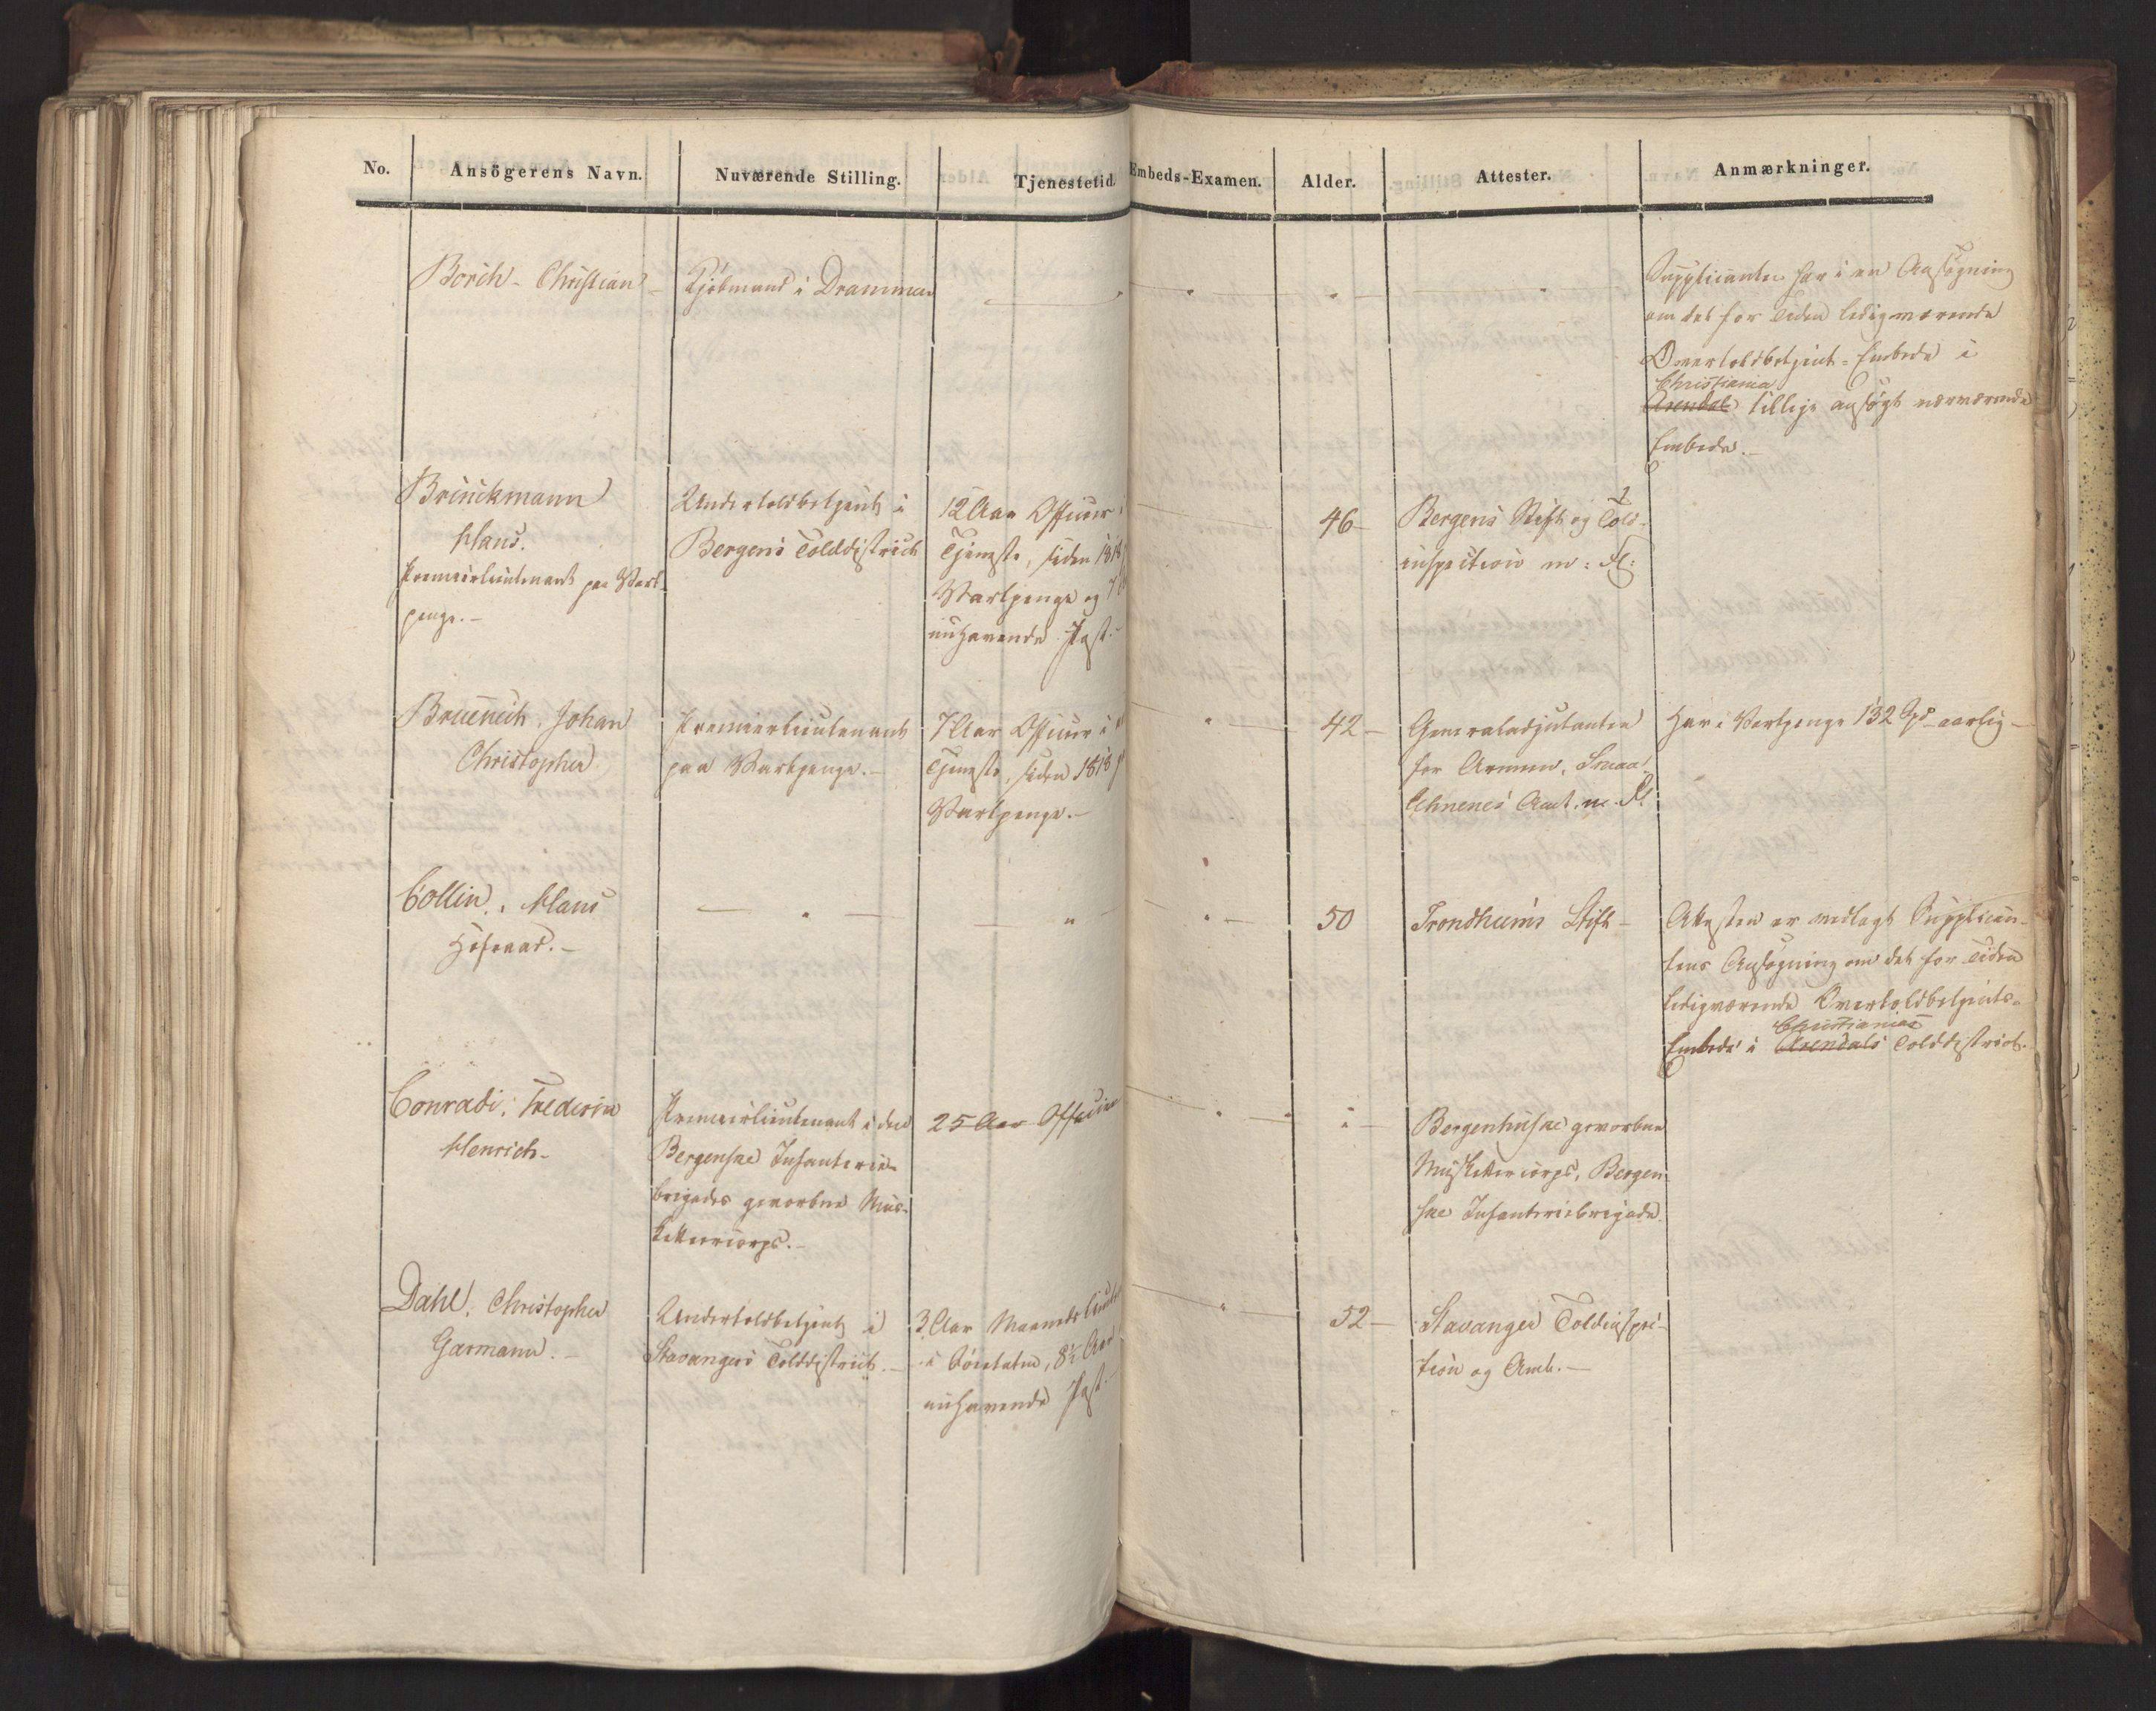 No. Ansögerens Navn. Nuværende Stilling. Tjenestetid. Embeds-Examen. Alder. Attester. Anmærkninger.
Borch - Christian - Kjöbmand i Drammen
Supplicanten har i en Ansøgning
om det for Tiden ledigværende
Overtoldbetjent-Embede i
Christiania
Arendal tillige ansøgt nærværende
Embede.-
Brinckmann
Hans.
Premierlieutenant paa Vart-
penge.-
Undertoldbetjent i
Bergens Tolddistrict
12 Aar Officier i
Tjeneste, siden 1818
Vartpenge og 7
nuhavende Post.-
46-
Bergens Stift og Told-
inspection m: Fl:
Bruenech, Johan
Christopher.
Premierlieutenant
paa Vartpenge.-
7 Aar Officier i
Tjeneste, siden 1818
Vartpenge.-
" 42-
Generaladjutanten
for Armeen, Smaa-
lehnenes Amt. m. Fl.
Har i Vartpenge 132 Spd aarlig-
Collin, Hans
Hofraad.-
" " " 50
Trondhiems Stift-
Attesten er vedlagt Supplican-
tens Ansøgning om det for Tiden
ledigværende Overtoldbetjents-
Christianias
Embede i Arendals Tolddistrict.
Conradi, Frederik
Henrich-
Premierlieutenant i den
Bergenske Infanterie-
brigades gevorbne Mus-
ketteercorps.-
25 Aar Officier
Bergenhuske gevorbne
Musketteercorps, Bergen-
ske Infanteriebrigade.
Dahl, Christopher
Garmann.-
Undertoldbetjent i
Stavangers Tolddistrict.-
3 Aar Maaneds
i Söeetaten, 8½ Aar
nuhavende Post.-
" 52-
Stavanger Toldinspec-
tion og Amt.-